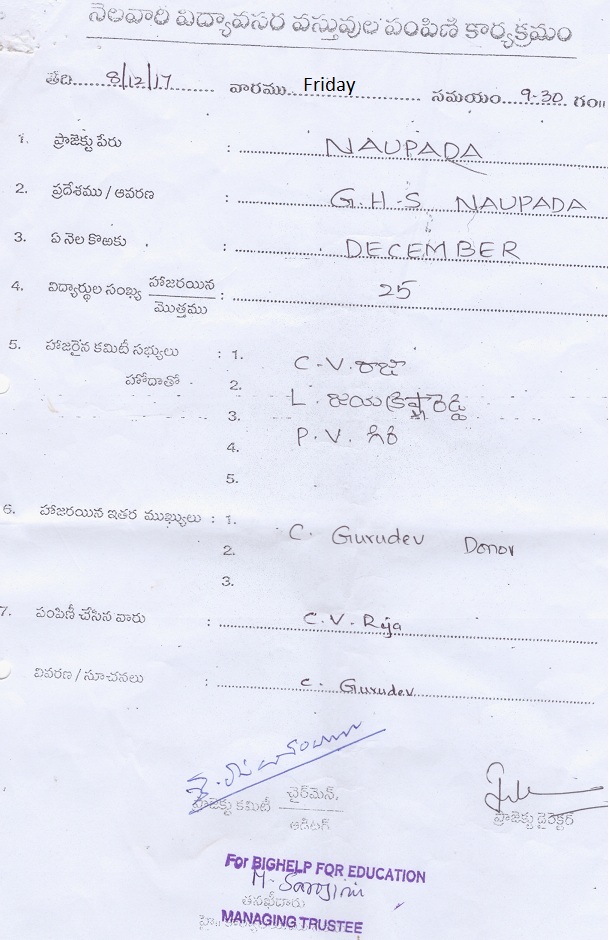 నెలవారి విద్యావసర వస్తువుల పంపిణి కార్యక్రమం
తేది 8/12/17 వారము Friday సమయం 9-30 గం॥
1. ప్రాజెక్టు పేరు : NAUPADA
2. ప్రదేశము / ఆవరణ : G.H-S NAUPADA
3. ఏ నెల కొఱకు : DECEMBER
4. విద్యార్థుల సంఖ్య హాజరయిన : 25
మొత్తము
5. హాజరైన కమిటీ సభ్యులు : 1. C-V. రాజా
హోదాతో 2. L. జయక్రిష్ణారెడ్డి
3. P. V. గిరి
4.
5.
6. హాజరయిన ఇతర ముఖ్యులు : 1. C. Gurudev Donor
2.
3.
7. పంపిణీ చేసిన వారు : C.V. Raja
వివరణ / సూచనలు : C. Gurudev
ప్రాజెక్టు కమిటీ ఛైర్‌మెన్,
ఆడిటర్
ప్రాజెక్టు డైరెక్టర్
For BIGHELP FOR EDUCATION
M. Sarojini
తనఖీదారు
MANAGING TRUSTEE